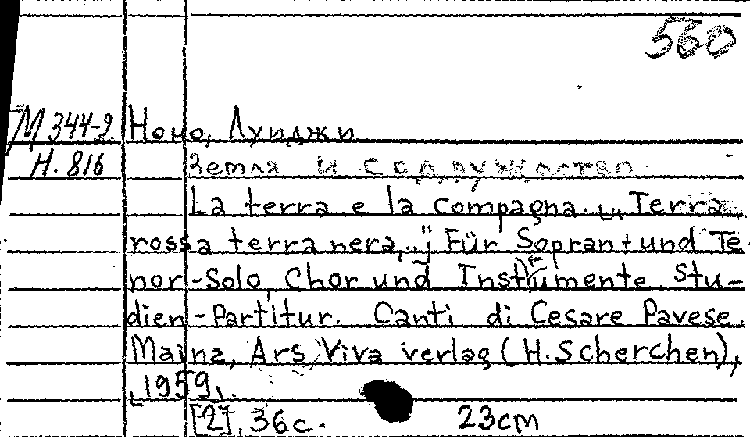 560
М 344-2 Ноно, Луиджи
Н. 816 Земля и содружество
La terra e la compagna. „Terra
rossa terra nera,..." Für Sopran+und Te-
nor-Solo, Chor und Instrumente. Stu-
dien-Partitur. Canti di Cesare Pavese.
Mainz, Ars Viva verlag (H. Scherchen),
1959.
[2], 36 с. 23cm